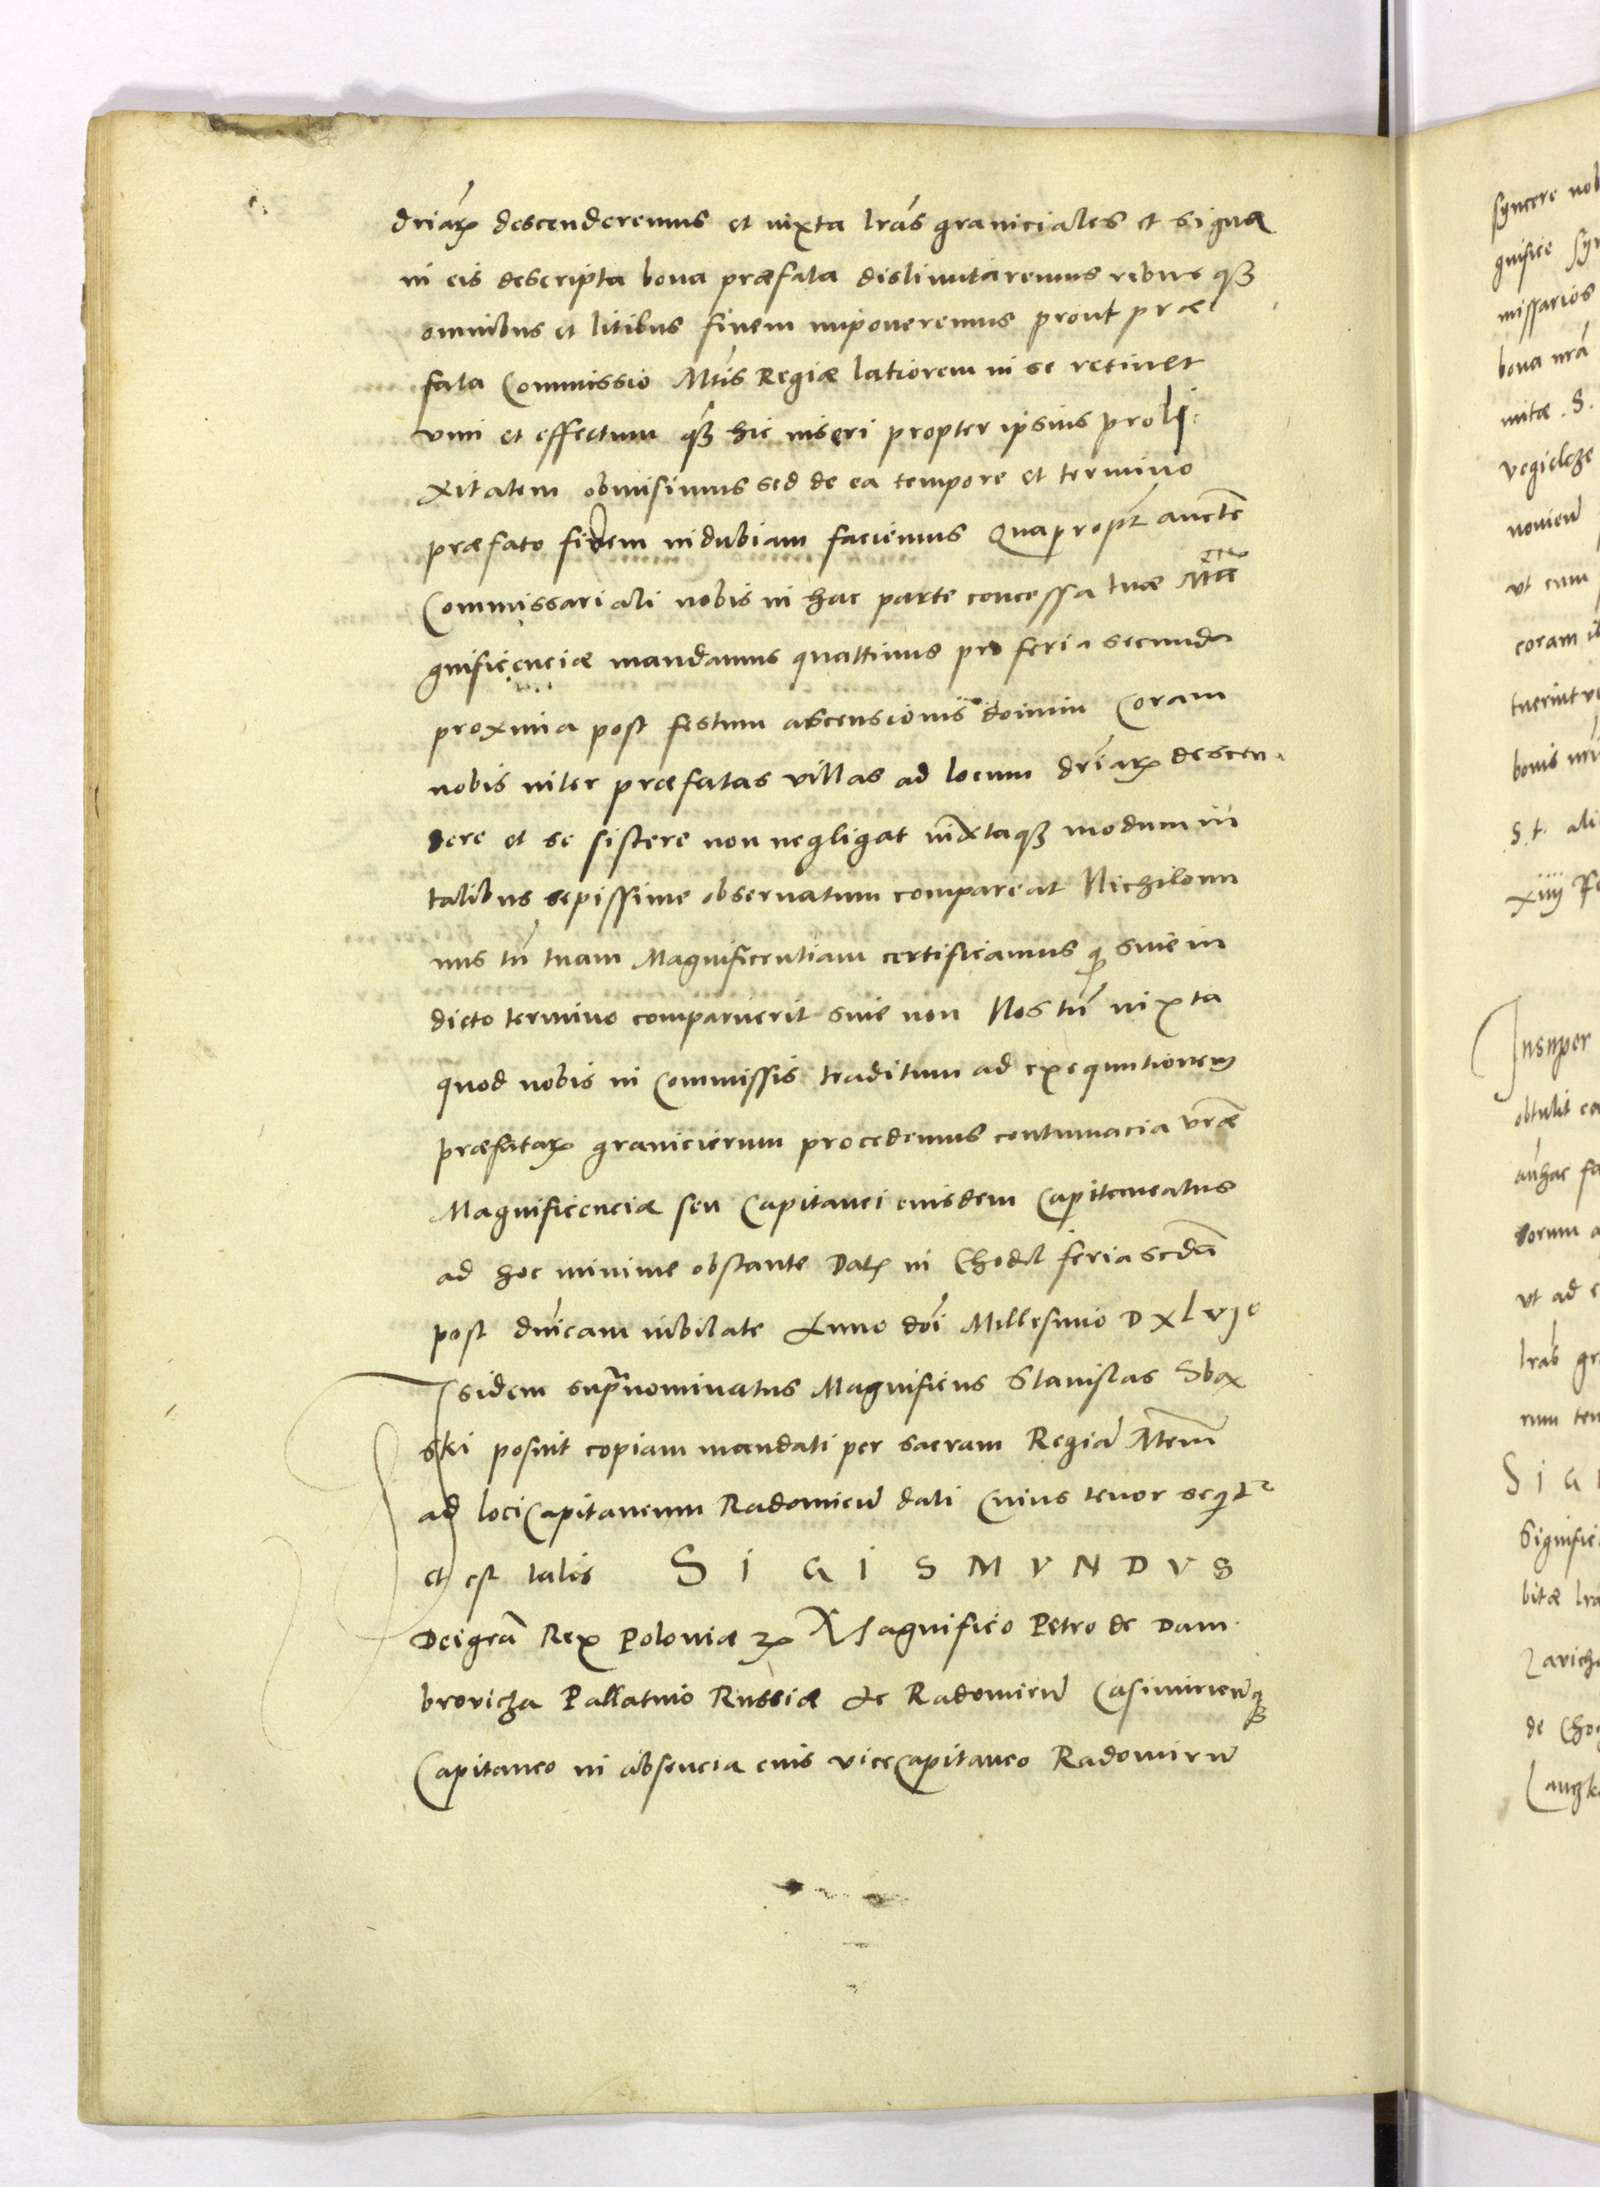 driaꝝ descenderemus et iuxta lr̃as graniciales et signa
in eis descripta bona præfata dislimitaremus rebusqꝫ
omnibus et litibus finem imponeremus prout præ
fata Commissio Mtis Regiæ latiorem in se retinet
vim et effectum qꝫ hic inseri propter ipsius proli:
xitatem obmisimus sed de ea tempore et termino
præfato fidem indubiam faciemus Quapropt auctẽ
Commissariali nobis in hac parte concessa tuæ Ma
gnificenciæ mandamus quattinus pro feria secunda
proxima post festum ascensionis domini Coram
nobis inter præfatas villas ad locum driaꝝ descen
dere et se sistere non negligat iuxtaqꝫ modum in
talibus sepissime obseruatum compareat Nichilomi
nus tñ tuam Magnificentiam certificamus qꝫ siue in
dicto termino comparuerit siue non Nos tñ iuxta
quod nobis in Commissis traditum ad exequutionem
præfataꝝ granicierum procedemus contumacia vr̃æ
Magnificenciæ seu Capitanei eiusdem Capitaneatus
ad hoc minime obstante Datꝝ in Chodel feria scdã
post dnicam iubilate Anno dñi Millesimo DXLvjo
Isidem supranominatus Magnificus Stanislas Sbax
ski posuit copiam mandati per sacram Regiã Mtem
ad loci Capitaneum Radomieñ dati Cuius tenor sequit
et est talis SIGISMVNDVS
Dei grã Rex Poloniæ ꝛc Magnifico Petro de Dam
browicza Pallatino Russiæ Ac Radomieñ Casimirieñqꝫ
Capitaneo in absencia eius viceCapitaneo Radomieñ

syncere nob
gnifice syn
missarios
bona nr̃a
mitæ . S.
vegielcze
nouieñ
vt cum
coram
tuerint
bonis
S. t. ali
xiiij Fe
Insuper
obtulit
anhac fa
vt ad
lr̃as gr
rum ten
SIG
Signific
bitæ lr̃a
Zarich
de Cho